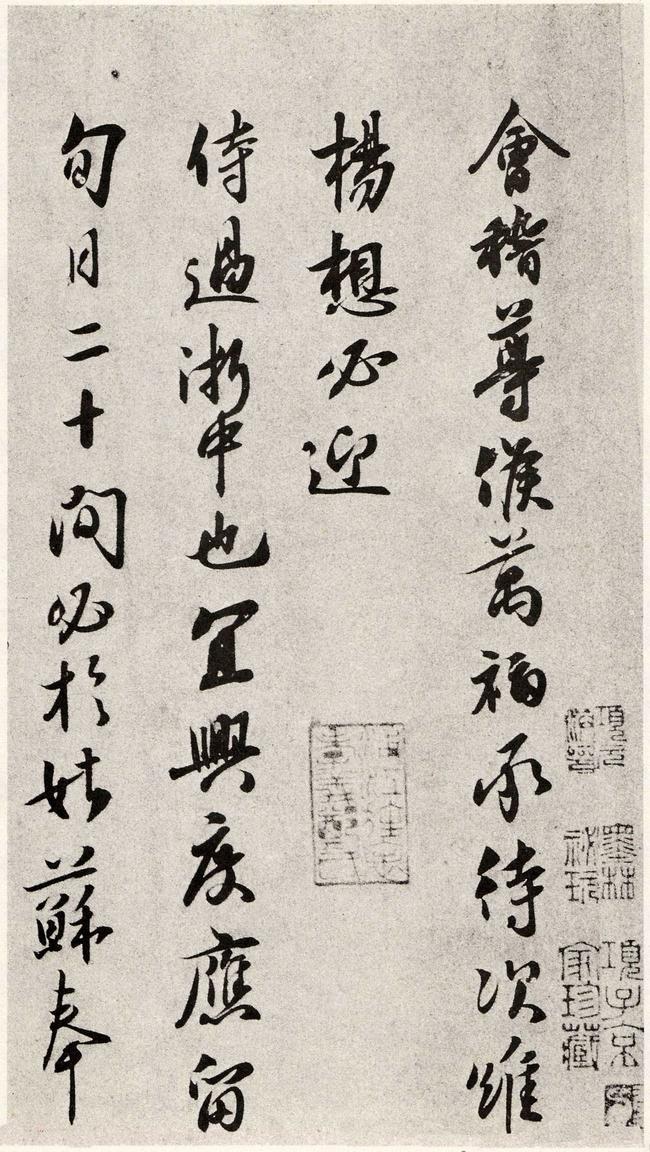 會稽尊候萬福承待次維
楊想必迎
侍過浙中也宜興度應留
旬日二十間必於姑蘇奉
墨林
祕玩
項子京
家珍藏